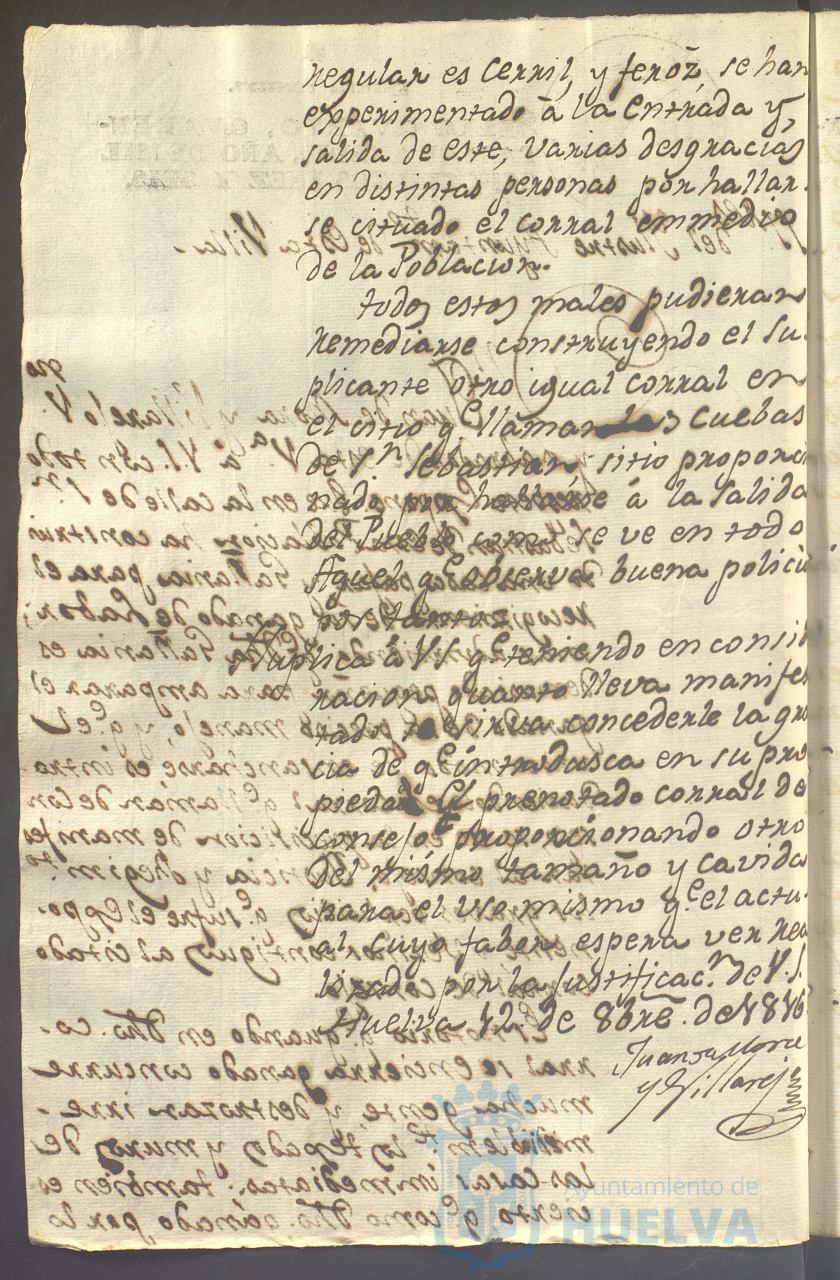 regular es Cerril, y feroz, se han
experimentado â la entrada y
salida de este, varias desgracias
en distintas personas por hallar-
se cituado el corral emmedio
de la Poblacion.
todos estos males pudieran
remediarse construyendo el Su-
plicante otro igual corral en
el citio qᵉ llaman las Cuebas
de Sⁿ Sebastian, sitio proporci
nado por hallarse â la salida
del Pueblo como se ve en todo
Aquel qᵉ observa buena policia
por tanto
Suplica â VS qᵉ teniendo en consi
racion quanto lleva manifes
tado se sirva concederle la gra
cia de qᵉ introdusca en su pro
piedad el prenotado corral de
consejo proporcionando otro
del mismo tamaño y cavida
para el uso mismo qᵉ el actu-
al cuyo fabor espera ver rea
lizado por la Justificacⁿ de V.S.
Huelva 12 de 8bre. de 1816
Juan de Mora
y Villarejo
Ayuntamiento de
HUELVA